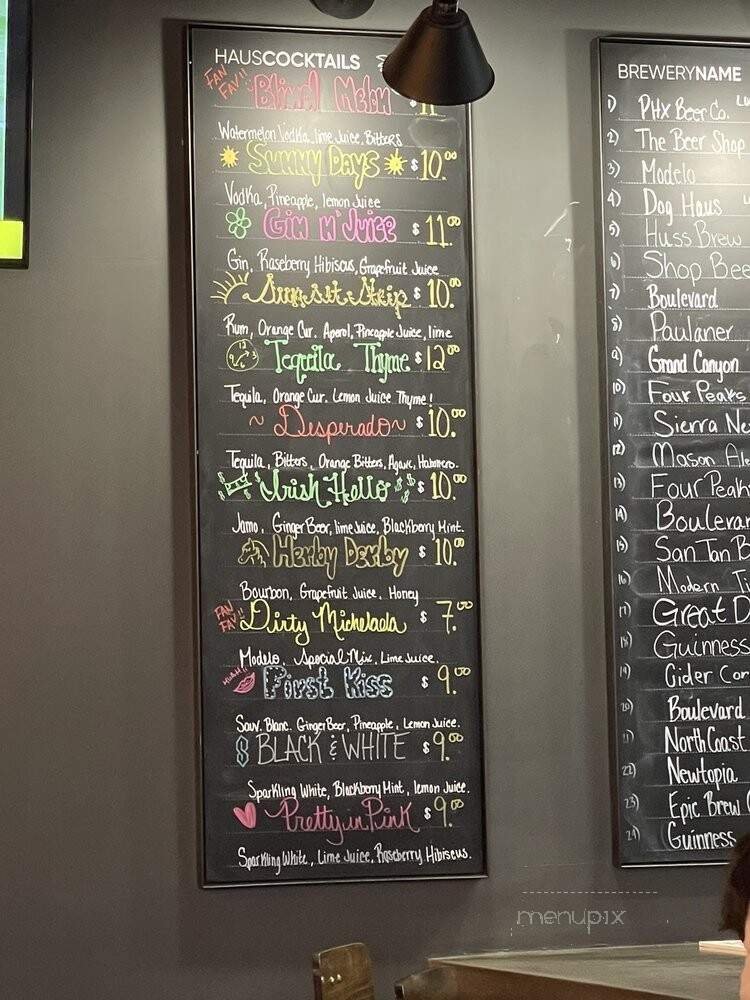 HAUSCOCKTAILS
FAN FAV!!
Blind Melon $11
Watermelon Vodka, lime Juice, Bitters
Sunny Days $10.00
Vodka, Pineapple, lemon Juice
Gin N' Juice $11.00
Gin, Raseberry Hibiscus, Grapefruit Juice
Sunset Strip $10.00
Rum, Orange Cur. Aperol, Pineapple Juice, lime
Tequila Thyme $12.00
Tequila, Orange Cur. Lemon Juice Thyme!
~ Desperado ~ $10.00
Tequila, Bitters, Orange Bitters, Agave, Habanero.
Irish Hello $10.00
Jamo, Ginger Beer, lime Juice, Blackberry Mint.
Herby Derby $10.00
Bourbon, Grapefruit Juice, Honey
FAN FAV!!
Dirty Michelada $7.00
Modelo, Special Mix, Lime Juice.
MUAH!!
First Kiss $9.00
Sauv. Blanc. Ginger Beer, Pineapple, Lemon Juice.
BLACK & WHITE $9.00
Sparkling White, Blackberry Mint, lemon Juice.
Pretty in Pink $9.00
Sparkling White, Lime Juice, Raseberry Hibiscus.
BREWERYNAME
1) PHX Beer Co.
2) The Beer Shop
3) Modelo
4) Dog Haus
5) Huss Brew
6) Shop Bee
7) Boulevard
8) Paulaner
9) Grand Canyon
10) Four Peaks
11) Sierra Ne
12) Mason Ale
13) Four Peaks
14) Boulevar
15) San Tan B
16) Modern T
17) Great D
18) Guinness
19) Cider Cor
20) Boulevard
21) North Coast
22) Newtopia
23) Epic Brew
24) Guinness
menupix